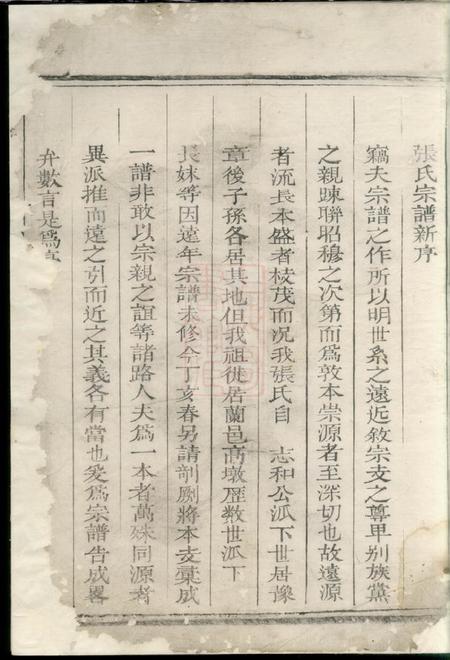 張氏宗譜新序
竊夫宗譜之作所以明世系之遠近敘宗支之尊卑别族黨
之親踈聯昭穆之次第而爲敦本崇源者至深切也故遠源
者流長本盛者枝茂而况我張氏自 志和公派下世居豫
章後子孫各居其地但我祖徙居蘭邑高墩歷数世派下
長妹等因遠年宗譜未修今丁亥春另請剞劂將本支彙成
一譜非敢以宗親之誼等諸路人夫爲一本者萬殊同源者
異派推而遠之引而近之其義各有當也爰爲宗譜告成畧
弁數言是爲序